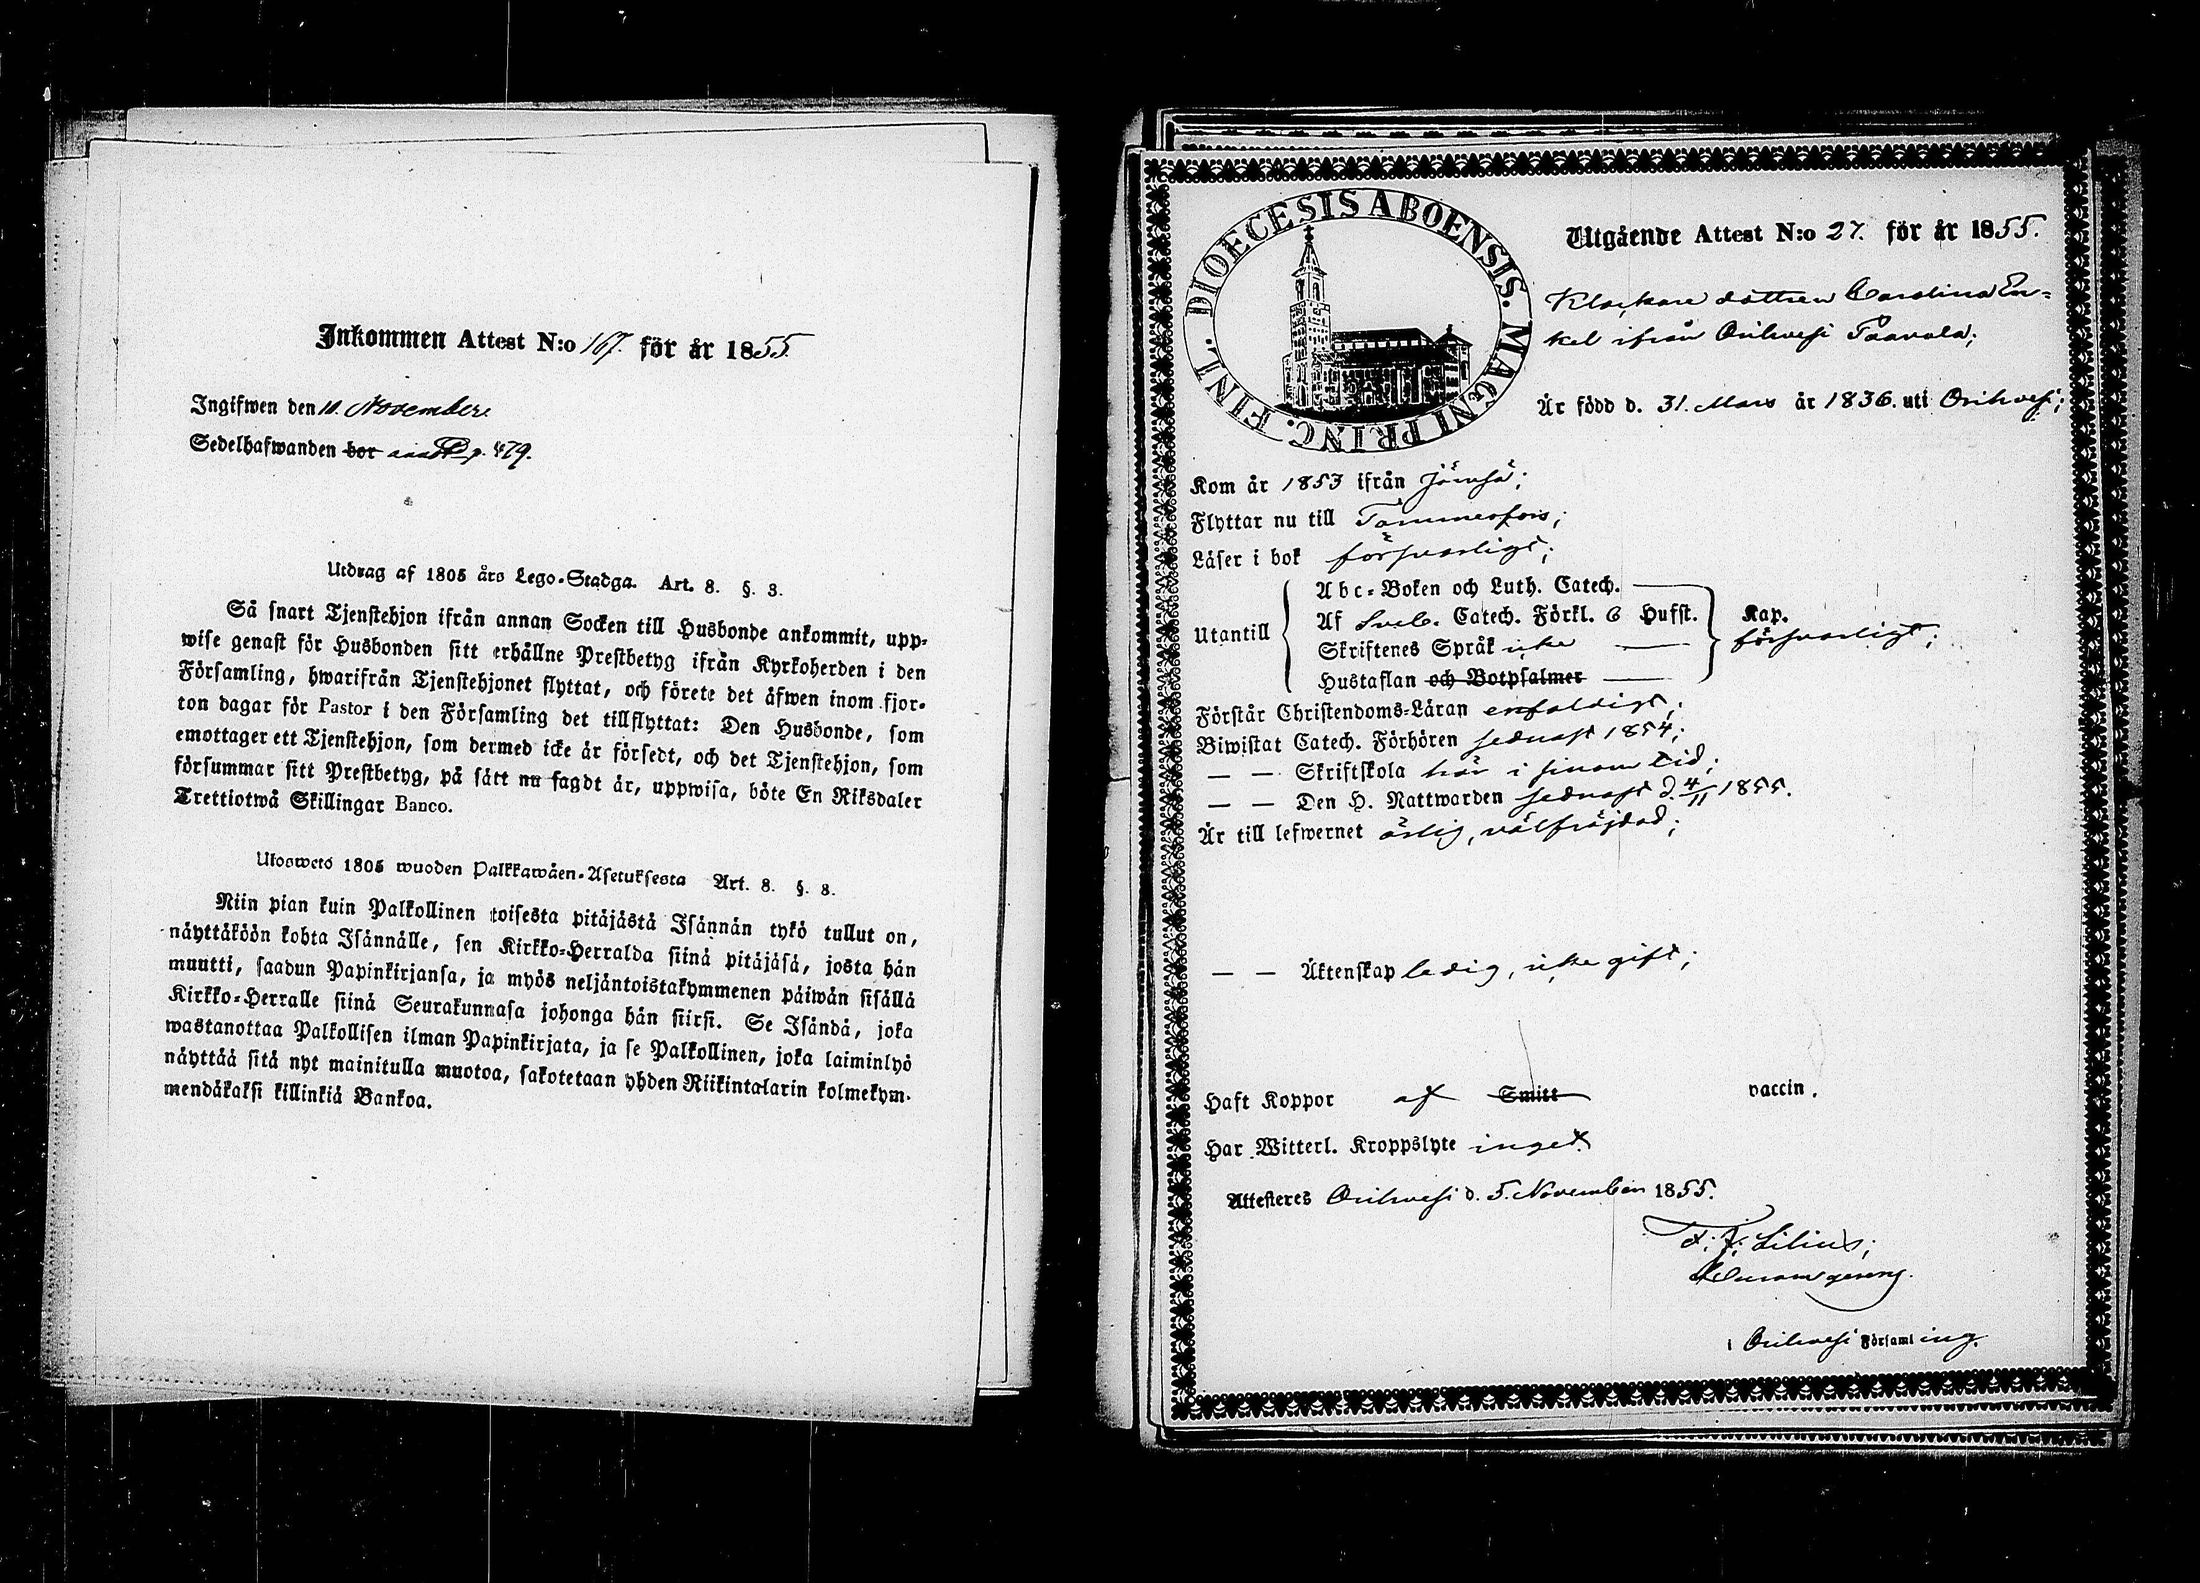 Inkommen Attest N:o 167. för år 1855
Ingifwen den 10. November
Sedelhafwanden bor p. 479.
Utdrag af 1805 års Lego-Stadga. Art. 8. §. 3.
Så snart Tjenstehjon ifrån annan Socken till Husbonde ankommit, upp-
wise genast för Husbonden sitt erhållne Prestbetyg ifrån Kyrkoherden i den
Församling, hwarifrån Tjenstehjonet flyttat, och förete det äfwen inom fjor-
ton dagar för Pastor i den Församling det tillflyttat: Den Husbonde, som
emottager ett Tjenstehjon, som dermed icke är försedt, och det Tjenstehjon, som
försummar sitt Prestbetyg, på sätt nu sagdt är, uppwisa, böte En Riksdaler
Trettiotwå Skillingar Banco.
Uloswets 1805 wuoden Palkkawäen-Asetuksesta Art. 8. §. 3.
Niin pian kuin Palkollinen toisesta pitäjästä Isännän tykö tullut on,
näyttäköön kohta Isännälle, sen Kirkko-Herralda siinä pitäjäsä, josta hän
muutti, saadun Papinkirjansa, ja myös neljäntoistakymmenen päiwän sisällä
Kirkko-Herralle siinä Seurakunnasa johonga hän siirsi. Se Isändä, joka
wastanottaa Palkollisen ilman Papinkirjata, ja se Palkollinen, joka laiminlyö
näyttää sitä nyt mainitulla muotoa, sakotetaan yhden Riikintalarin kolmekym-
mendäkaksi killinkiä Bankoa.
DIOECESIS ABOENSIS. MAGNI PRINC. FINL.
Utgående Attest N:o 27. för år 1855.
Klockare dottren Carolina En-
kel ifrån Orihvesi Paavola;
Är född d. 31. Mars år 1836. uti Orihvesi;
Kom år 1853 ifrån Jämsä;
Flyttar nu till Tammerfors;
Läser i bok försvarligt;
Utantill
Abc-Boken och Luth. Catech.
Af Sveb. Catech. Förkl. 6 Hufst. Kap.
Skriftenes Språk icke försvarligt;
Hustaflan och Botpsalmer
Förstår Christendoms-Läran enfaldigt;
Biwistat Catech. Förhören sednast 1854;
— — Skriftskola här i sinom tid;
— — Den H. Nattwarden sednast d. 4/11 1855.
Är till lefwernet ärlig, välfräjdad;
— — Äktenskap ledig, icke gift;
Haft Koppor af Smitt vaccin.
Har Witterl. Kroppslyte inget.
Attesteres Orihvesi d. 5. November 1855.
F. J. Lilius;
i Orihvesi Församling.